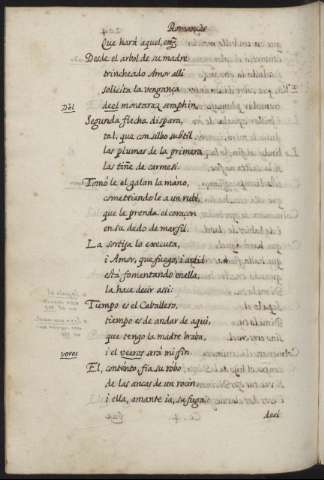 Romances
Que hará aquel, em~
Desde el arbol de su madre
trincheado Amor allí
solicita la vengança
Dèl
deel montaraz zerphin.
Segunda flecha dispara,
tal, que con siluo subtil
las plumas de la primera
las tiñe de carmesi.
Tomóle el galan la mano,
cometiendole a un rubí,
que le prenda el coraçon
en su dedo de marfil.
La sortija lo executa,
i Amor, que fuego, i ardid
està fomentando en ella,
la hace decir assi:
Tiempo es el Caballero,
tiempo es de andar de aqui,
que tengo la madre braba,
veros
i el veeros será mi fin.
El, contento, fia su robo
de las ancas de un rocin
i ella, amante ia, su fuga
desi